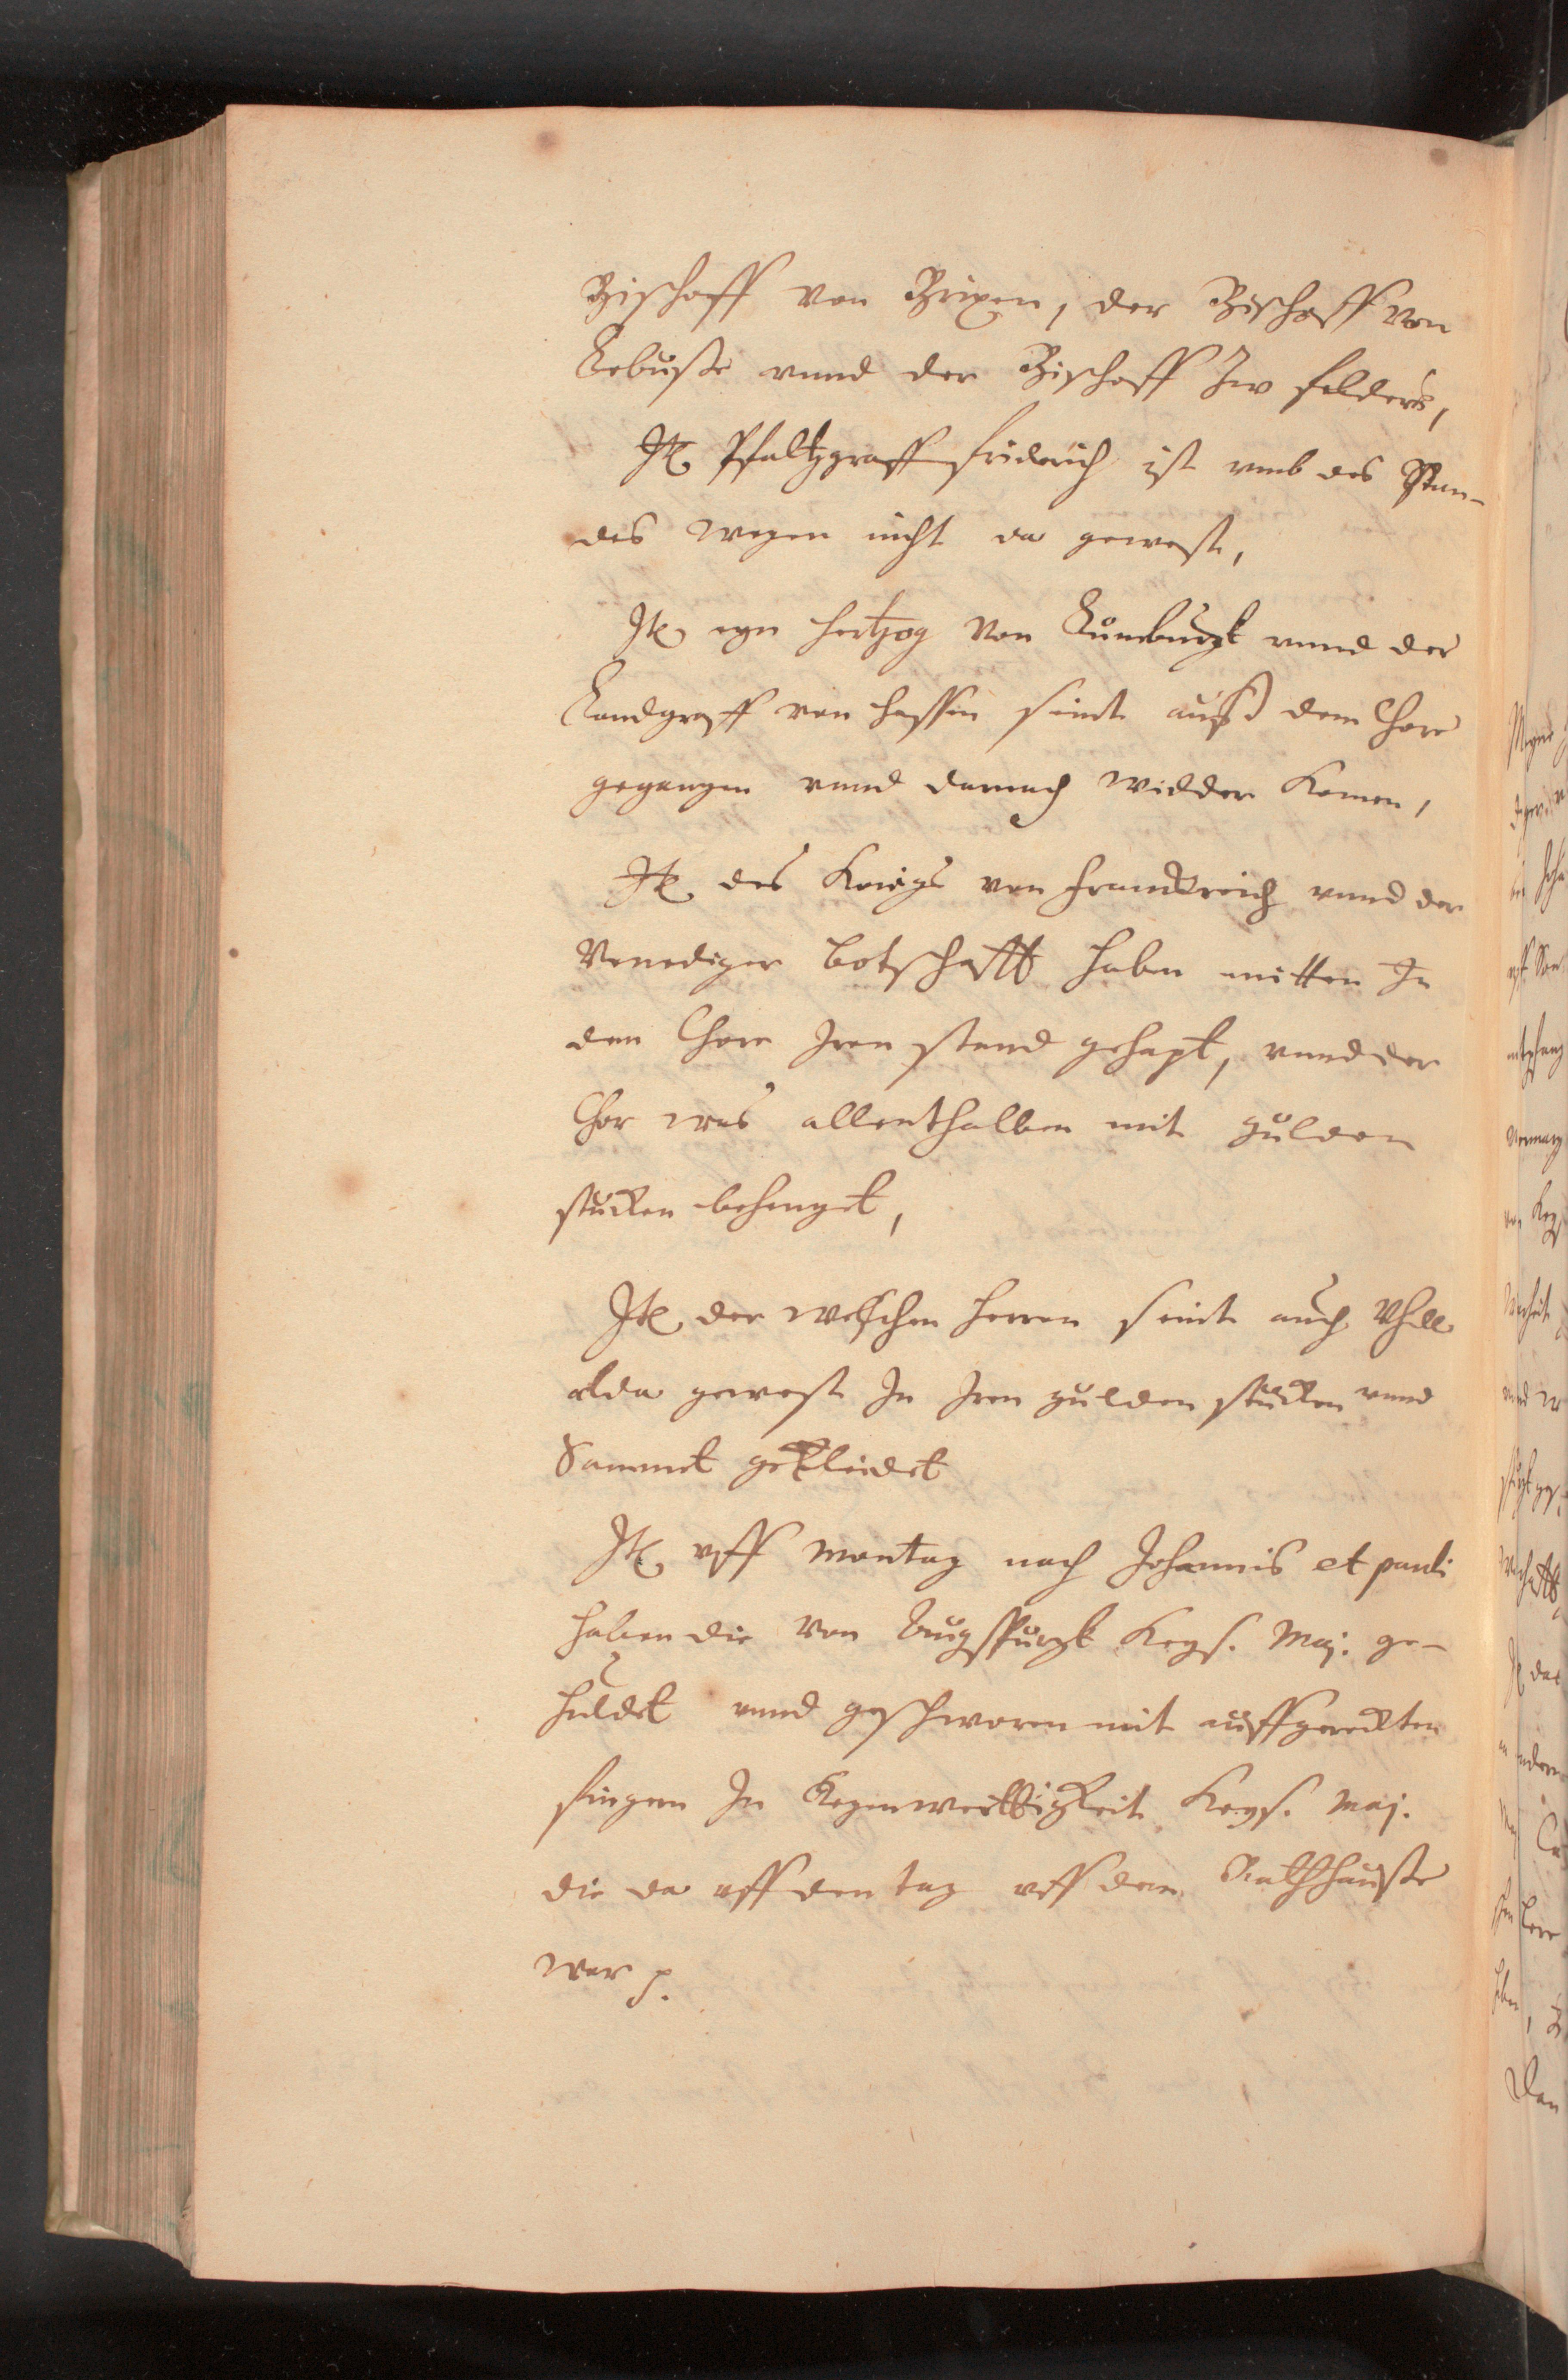 Bischoff von Brixen, der Bischoff von
Lebuße vnnd der Bischoff Zw feldern,
It Pfaltzgraff friderich ist vmb des Stan-
des wegen nicht da gewest,
It eyn hertzog von Lunburgk vnnd der
Landgraff von hessen seint auß dem Chore
gegangen vnnd darnach widder komen,
It des konigs von franckreich vnnd der
Venediger botschafft haben mitten In
dem Chore Iren stand gehapt, vnnd der
Chor was allenthalben mit gulden
stucken behenget,
It der welschen herren seint auch vhill
alda gewest In Iren gulden stucken vnnd
Sammet gekleidet
It vff montag nach Johannis et pauli
haben die von Augspurgk Keys. Maj. ge-
huldet vnnd geschworen mit auffgereckten
fingern In kegenwertigkeit Keys. Maj.
die da vff den tag vff dem Rathhauße
war p.